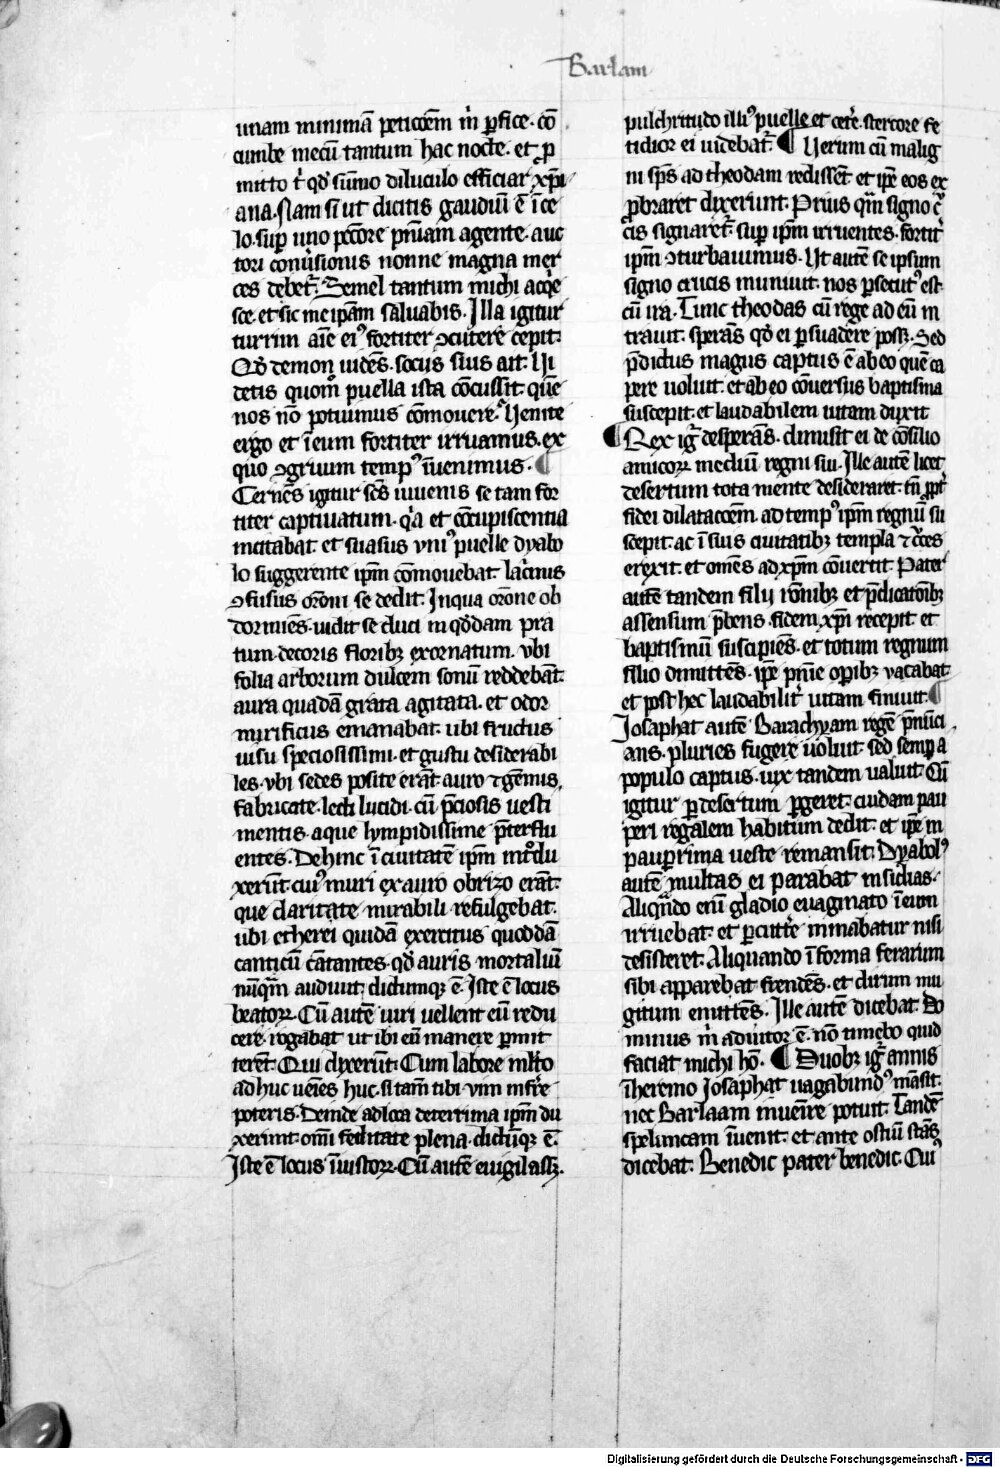 Barlam
unam minimā peticōem m̄ ꝑfice. cō
cumbe mecū tantum hac nocte. et ꝓ
mitto t̄ qd̄ sūmo diluculo efficiar xp̄i
ana. Nam si ut dicitis gaudiū ē ī ce
lo. suꝑ uno pctōre pn̄iam agente. auc
tori conūsionis nonne magna mer
ces debet̄. Semel tantum michi acq̄e
sce. et sic me ip̄am saluabis. Illa igitur
turrim aīe eiꝰ fortiter ꝯcutere cepit.
Qd̄ demon uidēs. sociis suis ait. Ui
detis quom̄ puella ista cōcussit. quē
nos nō potuimus cōmouere. Uenite
ergo et ī eum fortiter irruamus. ex
quo ꝯgruum tempꝰ īuenimus. ¶
Cernēs igitur sc̄s iuuenis se tam for
titer captiuatum. q̄a et cōcupiscentia
incitabat. et suasus vniꝰ puelle dyabo
lo suggerente ip̄m cōmouebat. lac̄mis
ꝯfusus or̄oni se dedit. In qua or̄one ob
dormiēs. uidit se duci in qd̄dam pra
tum. decoris floribꝫ exornatum. vbi
folia arborum dulcem sonū reddebāt.
aura quadā grata agitata. et odor
mirificus emanabat. ubi fructus
uisu speciosissimi. et gustu desiderabi
les. vbi sedes posite erāt. auro ⁊ gēmis
fabricate. lecti lucidi. cū p̄ciosis uesti
mentis. aque lympidissime p̄terflu
entes. Dehinc ī ciuitatē ip̄m īntͦdu
xerūt. cuiꝰ muri ex auro obrizo erāt.
que claritate mirabili refulgebat.
ubi etherei quidā exercitus quoddā
canticū cātantes. qd̄ auris mortaliū
nūq̄m audiuit. dictumqꝫ ē. Iste ē locus
beatoꝝ. Cū autē uiri uellent eū redu
cere. rogabat ut ibi eū manere ꝑmit
terēt. Qui dixerūt. Cum labore ml̄to
adhuc ueīes huc. si tam̄ tibi vim inferre
poteris. Deinde ad loca deterrima ip̄m du
xerunt. om̄i feditate plena. dictūqꝫ ē.
Iste ē locus īiustoꝝ. Cū autē euigilassꝫ.
pulchritudo illiꝰ puelle et cete. stercore fe
tidior ei uidebat̄. ¶ Uerum cū malig
ni sp̄s ad theodam redissēt. et ip̄e eos ex
ꝓbraret dixerunt. Prius q̄m signo c̄u
cis signaret̄. suꝑ ip̄m irruentes. fortit̄
ip̄m ꝯturbauimus. Ut autē se ipsum
signo crucis muniuit. nos ꝑsecutꝰ est
cū ira. Tunc theodas cū rege ad eū in
trauit. sperās qd̄ ei ꝑsuadere possꝫ. Sed
p̄dictus magus captus ē ab eo quē ca
pere uoluit. et ab eo cōuersus baptisma
suscepit. et laudabilem uitam duxit
¶ Rex iḡ desperās. dimisit ei de cōsilio
amicoꝝ mediū regni sui. Ille autē licet
desertum tota mente desideraret. tn̄ ꝓpt̄
fidei dilatacōem. ad tempꝰ ip̄m regnū su
scepit. ac ī suis ciuitatibꝫ templa ⁊ c̄ces
erexit. et omēs ad xp̄m cōuertit. Pater
autē tandem filii rōnibꝫ et p̄dicatōibꝫ
assensum p̄bens. fidem xp̄i recepit. et
baptismū suscipiēs. et totum regnum
filio dimittēs. ip̄e pn̄ie oꝑibꝫ vacabat.
et post hec laudabilit̄ uitam finiuit. ¶
Iosaphat autē Barachyam regē pn̄ūci
ans. pluries fugere uoluit. sed semꝑ a
populo captus. uix tandem ualuit. Cū
igitur ꝑ desertum ꝑgeret. cuidam pau
peri regalem habitum dedit. et ip̄e in
pauꝑrima ueste remansit. Dyabolꝰ
autē multas ei parabat insidias.
Aliqn̄do enī gladio euaginato ī eum
irruebat. et ꝑcut̄e minabatur nisi
desisteret. Aliquando ī forma ferarum
sibi apparebat frendēs. et dirum mu
gitum emittēs. Ille autē dicebat. Do
minus m̄ adiutor ē. nō timebo quid
faciat michi hō. ¶ Duobꝫ iḡ annis
ī heremo Iosaphat uagabundꝰ māsit.
nec Barlaam inuenire potuit. Tandē
speluncam īuenit. et ante ostiū stās
dicebat. Benedic pater benedic. Cuiꝰ
Digitalisierung gefördert durch die Deutsche Forschungsgemeinschaft - DFG